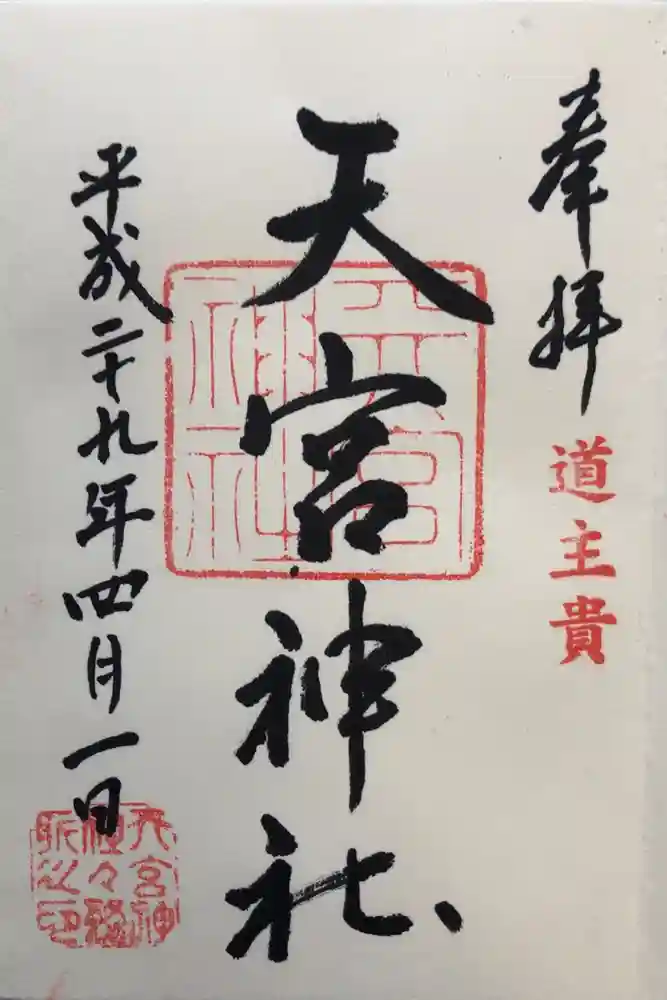 奉拝
道主貴
天宮神社
天宮神社
平成二十九年四月一日
天宮神
社々務
所之印